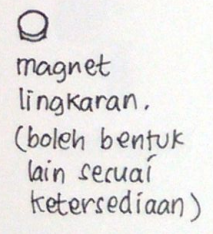 magnet
lingkaran.
(boleh bentuk
lain sesuai
ketersediaan)